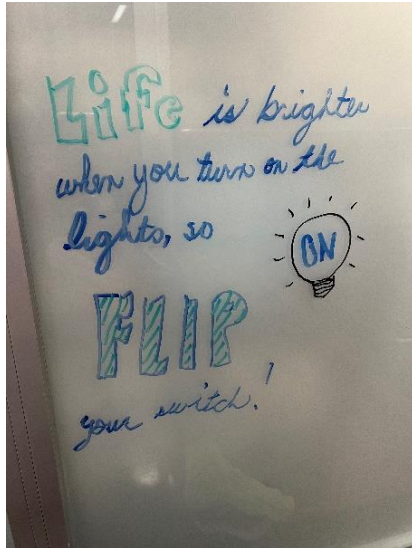 Life is brighter
when you turn on the
lights, so
ON
FLIP
your switch!